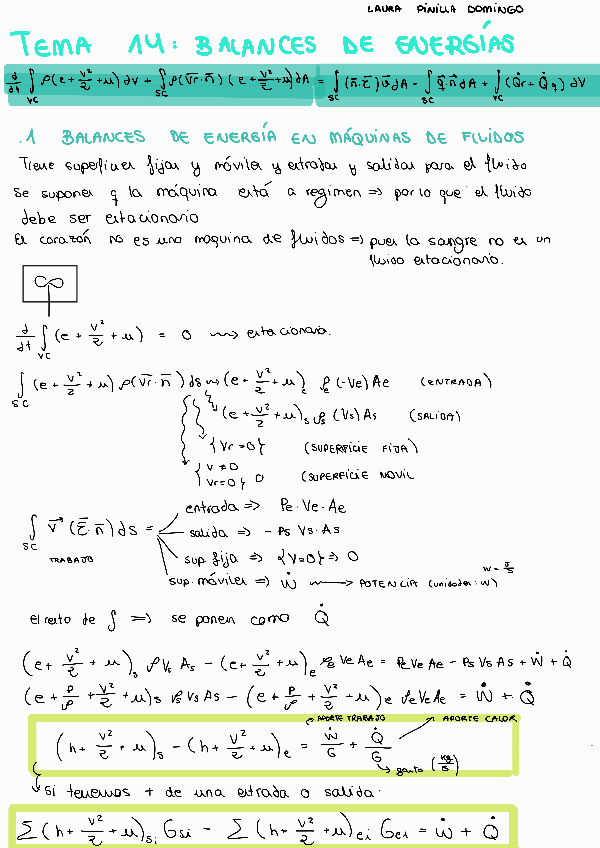 LAURA PINILLA DOMINGO
TEMA 14: BALANCES DE ENERGÍAS
d/dt ∫_VC ρ(e + v²/2 + u) dV + ∫_SC ρ(v̄r·n̄)(e + v²/2 + u) dA = ∫_SC (n̄·τ̄) v̄ dA - ∫_SC q̄·n̄ dA + ∫_VC (Q̇r + Q̇q) dV
.1 BALANCES DE ENERGÍA EN MÁQUINAS DE FLUIDOS
Tiene superficies fijas y móviles y entradas y salidas para el fluido
Se supones q la máquina está a regimen => por lo que el fluido
debe ser estacionario
El corazón no es una maquina de fluidos => pues la sangre no es un
fluido estacionario.
d/dt ∫_VC (e + v²/2 + u) = 0 ⟿ estacionario.
∫_SC (e + v²/2 + u) ρ(v̄r·n̄) ds ⟿ (e + v²/2 + u)_e ρe (-Ve) Ae (ENTRADA)
(e + v²/2 + u)_s ρs (Vs) As (SALIDA)
{Vr = 0} (SUPERFICIE FIJA)
{V ≠ 0 Vr = 0} 0 (SUPERFICIE MOVIL
∫_SC v⃗ (τ̄·n̄) ds =
TRABAJO
entrada => Pe·Ve·Ae
salida => - Ps Vs·As
sup fija => {V=0} => 0
sup. móviles => Ẇ ⟶ POTENCIA (unidades: W)
W = J/S
el resto de ∫ => se ponen como Q̇
(e + v²/2 + u)_s ρVs As - (e + v²/2 + u)_e ρe Ve Ae = Pe Ve Ae - Ps Vs As + Ẇ + Q̇
(e + P/ρ + v²/2 + u)s ρs Vs As - (e + P/ρ + v²/2 + u)e ρe Ve Ae = Ẇ + Q̇
APORTE TRABAJO
APORTE CALOR
(h + v²/2 + u)_s - (h + v²/2 + u)_e = Ẇ/G + Q̇/G
gasto (kg/s)
Si tenemos + de una entrada o salida.
∑ (h + v²/2 + u)_si Gsi - ∑ (h + v²/2 + u)_ei Gei = Ẇ + Q̇